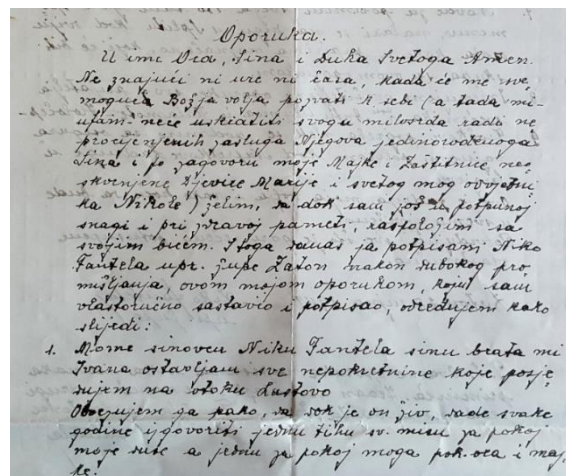 Oporuka.
U ime Oca, Sina i Duha Svetoga Amen.
Ne znajući ni ure ni časa, kada će me sve
moguća Božja volja pozvati k sebi (a tada mi-
utam neće uskratiti svogu milosrđa radi ne
procijenjenih zasluga Njegova jedinorođenoga
Sina i po zagovoru moje Majke i Zaštitnice neo
skvrnjene Djevice Marije i svetog mog odvjetni
ka Nikole) želim, da dok sam još pri potpunoj
snagi i pri zdravoj pameti, raspoložim sa
svojim bićem. Stoga danas ja potpisani Niko
Fantela upr. župe Zaton nakon dubokog pro
mišljanja, ovom mojom oporukom, koju sam
vlastoručno sastavio i potpisao, određujem kako
slijedi:
1. Mome sinovcu Niku Fantela sinu brata mi
Ivana ostavljam sve nepokretnine koje posje
dujem na otoku Lastovo
Obvezujem ga pako, da dok je on živ, dade svake
godine izgovoriti jednu tihu sv. misu za pokoj
moje duše a jednu za pokoj moga pok. oca i maj
ke;